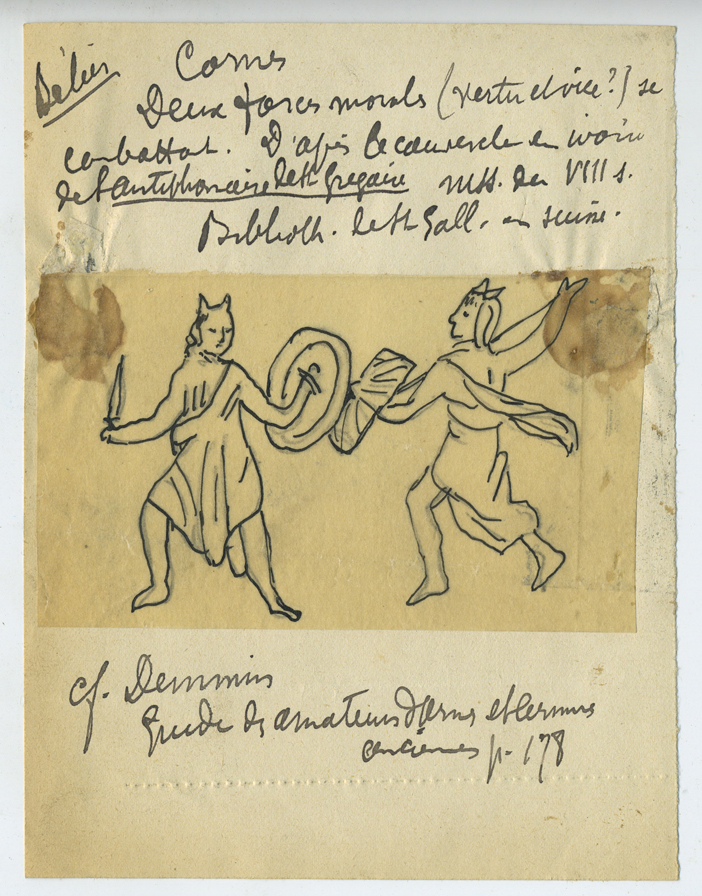 Bélier
Cornes
Deux forces morales (vertu et vice?) se
combattant. D'après le couvercle en ivoire
de l'antiphonaire de St Grégoire mss. du VIII s.
Biblioth. de St Gall. en suisse.
cf. Demmin
Guide des amateurs d'armes et armures
anciennes p. 178